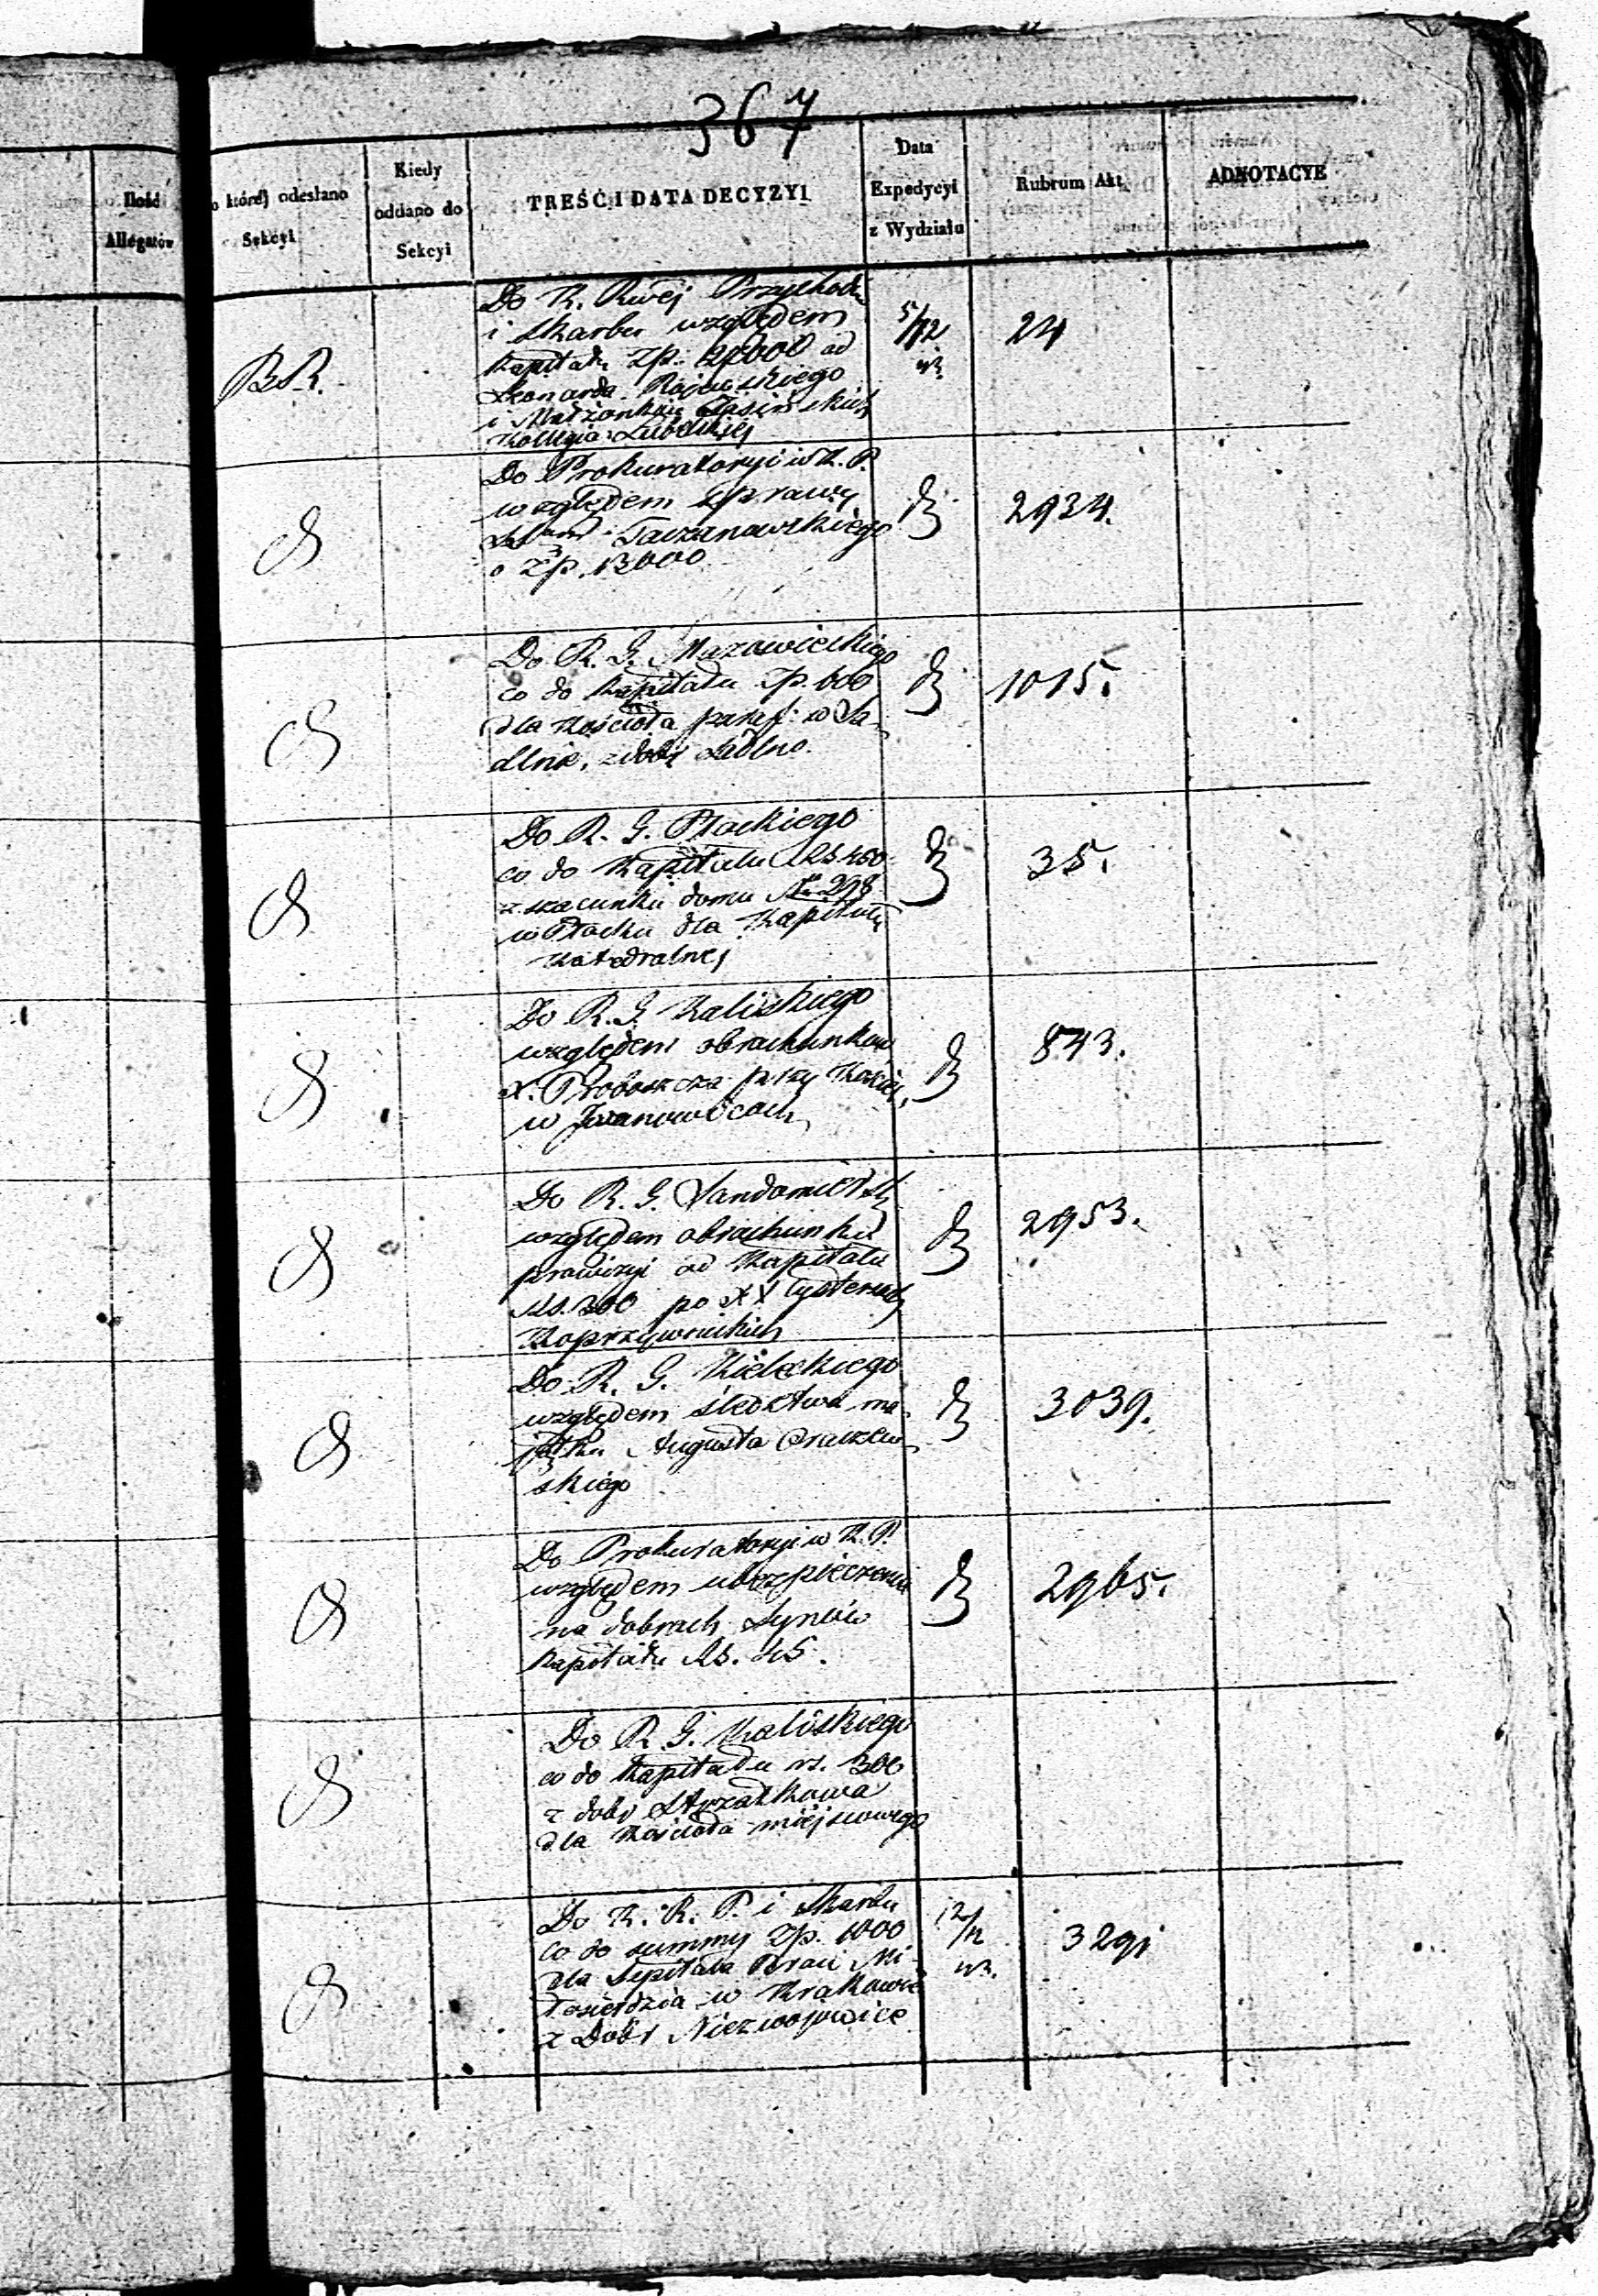 367
Ilość
Allegatów
o której odesłano
Sekcyi
Kiedy
oddano do
Sekcyi
TREŚĆ I DATA DECYZYI
Data
Expedycyi
z Wydziału
Rubrum Akt
ADNOTACYE
Do K. Rwej Przychodu
i Skarbu względem
Kapitału Zp: od
Leonarda
i Małżonków
Lubelskiej
BR.
5/12
24
Do Prokuratoryi w K. P.
względem sprawy
Taczanowskiego
o Zp. 12000
2934.
Do R. G. Mazowieckiego
co do Kapitału Zp. 600
dla Kościoła paraf: w Sa-
dlnie, z dóbr Sadlno.
1015.
Do R. G. Płockiego
co do Kapitału RS 450
z szacunku domu No 298
w Płocku dla Kapituły
Katedralnej
35.
Do R. G. Kaliskiego
względem obrachunków
X. Proboszcza przy Kościele
w Iwanowicach
843.
Do R. G. Sandomirsk
względem obrachunku
prowizyi od Kapitału
Rs. 300 po XX Cystersach
Koprzywnickich
2953.
Do R. G. Kieleckiego
względem śledztwa ma-
jątku Augusta
skiego
3039.
Do Prokuratoryi w K. P.
względem ubezpieczenia
na dobrach Synców
Kapitału Rs. 45.
2965.
Do R. G. Kaliskiego
co do Kapitału rs. 300
z dóbr Strzałkowa
dla Kościoła miejscowego
Do K. R. P. i Skarbu
co do summy Zp. 1000
dla Szpitala Braci Mi-
łosierdzia w Krakowie
z Dóbr Niezwojowice
12/12
3291